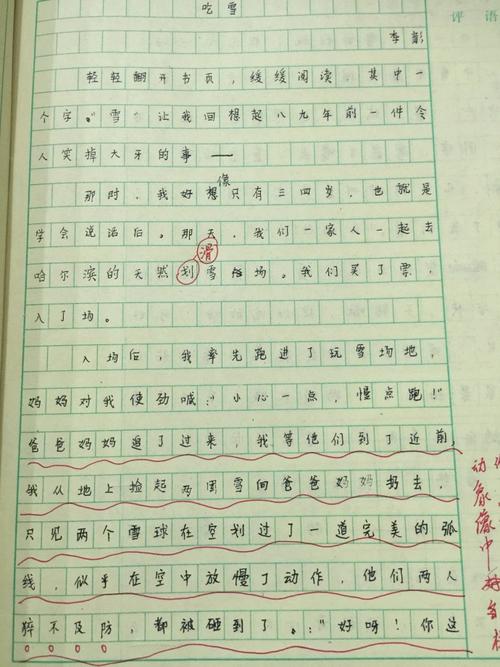 评语
吃雪
李彭
轻轻翻开书页，缓缓阅读，其中一
个字“雪”让我回想起八九年前一件令
人笑掉大牙的事——
那时，我好想像只有三四岁，也就是
学会说话后。那天，我们一家人一起去
滑
哈尔滨的天然划雪场。我们买了票，
入了场。
入场后，我率先跑进了玩雪场地，
妈妈对我使劲喊：“小心一点，慢点跑！”
爸爸妈妈追了过来，我等他们到了近前，
我从地上捡起两团雪向爸爸妈妈扔去，
只见两个雪球在空划过了一道完美的弧
线，似乎在空中放慢了动作，他们两人
猝不及防，都被砸到了。：“好呀！你这
动
象
中
好